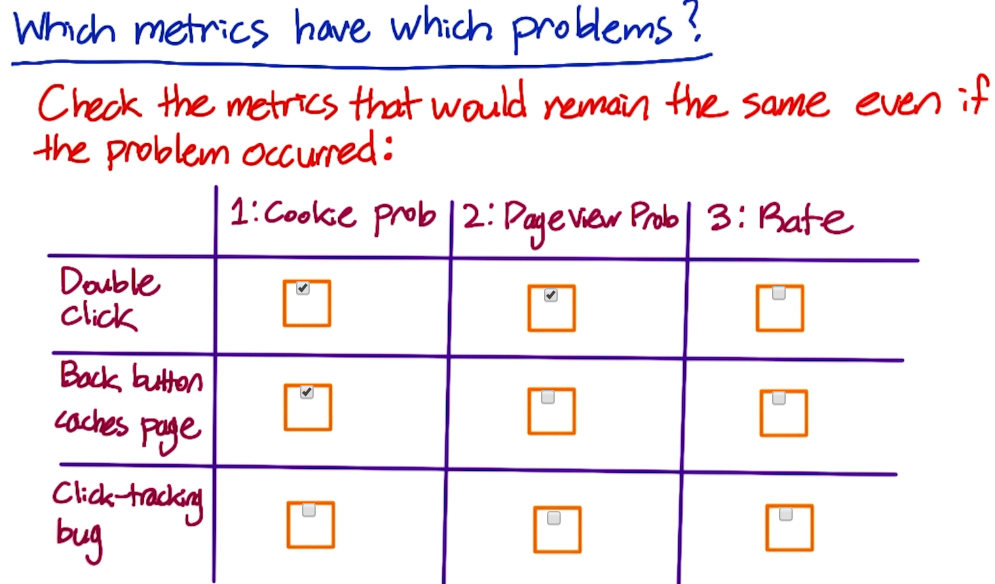 Which metrics have which problems?
Check the metrics that would remain the same even if
the problem occurred:
1: Cookie prob 2: Pageview Prob 3: Rate
Double
click
Back button
caches page
Click-tracking
bug